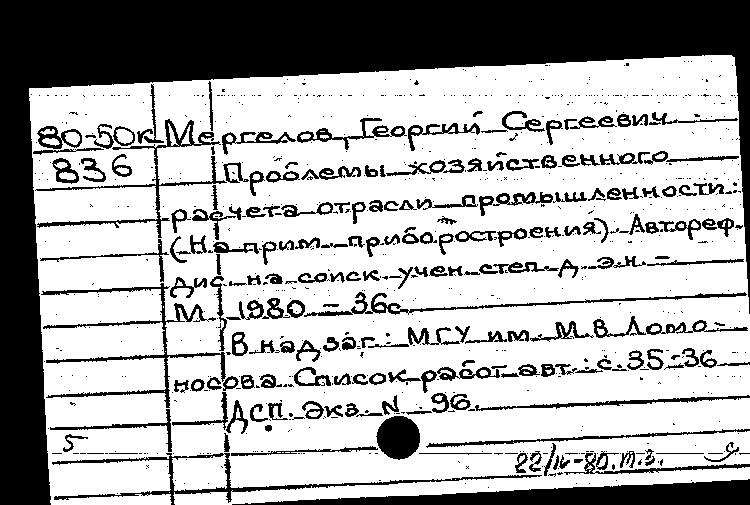 80-50к Мергелов, Георгий Сергеевич
836 Проблемы хозяйственного
расчета отрасли промышленности:
(На прим. приборостроения). Автореф.
дис. на соиск. учен. степ. д. э. н. –
М., 1980. – 36с.
В надзаг.: МГУ им. М. В. Ломо-
носова. Список работ авт.: с. 35-36
ДСП. Экз. N 96.
5
22/IV-80. М.З.